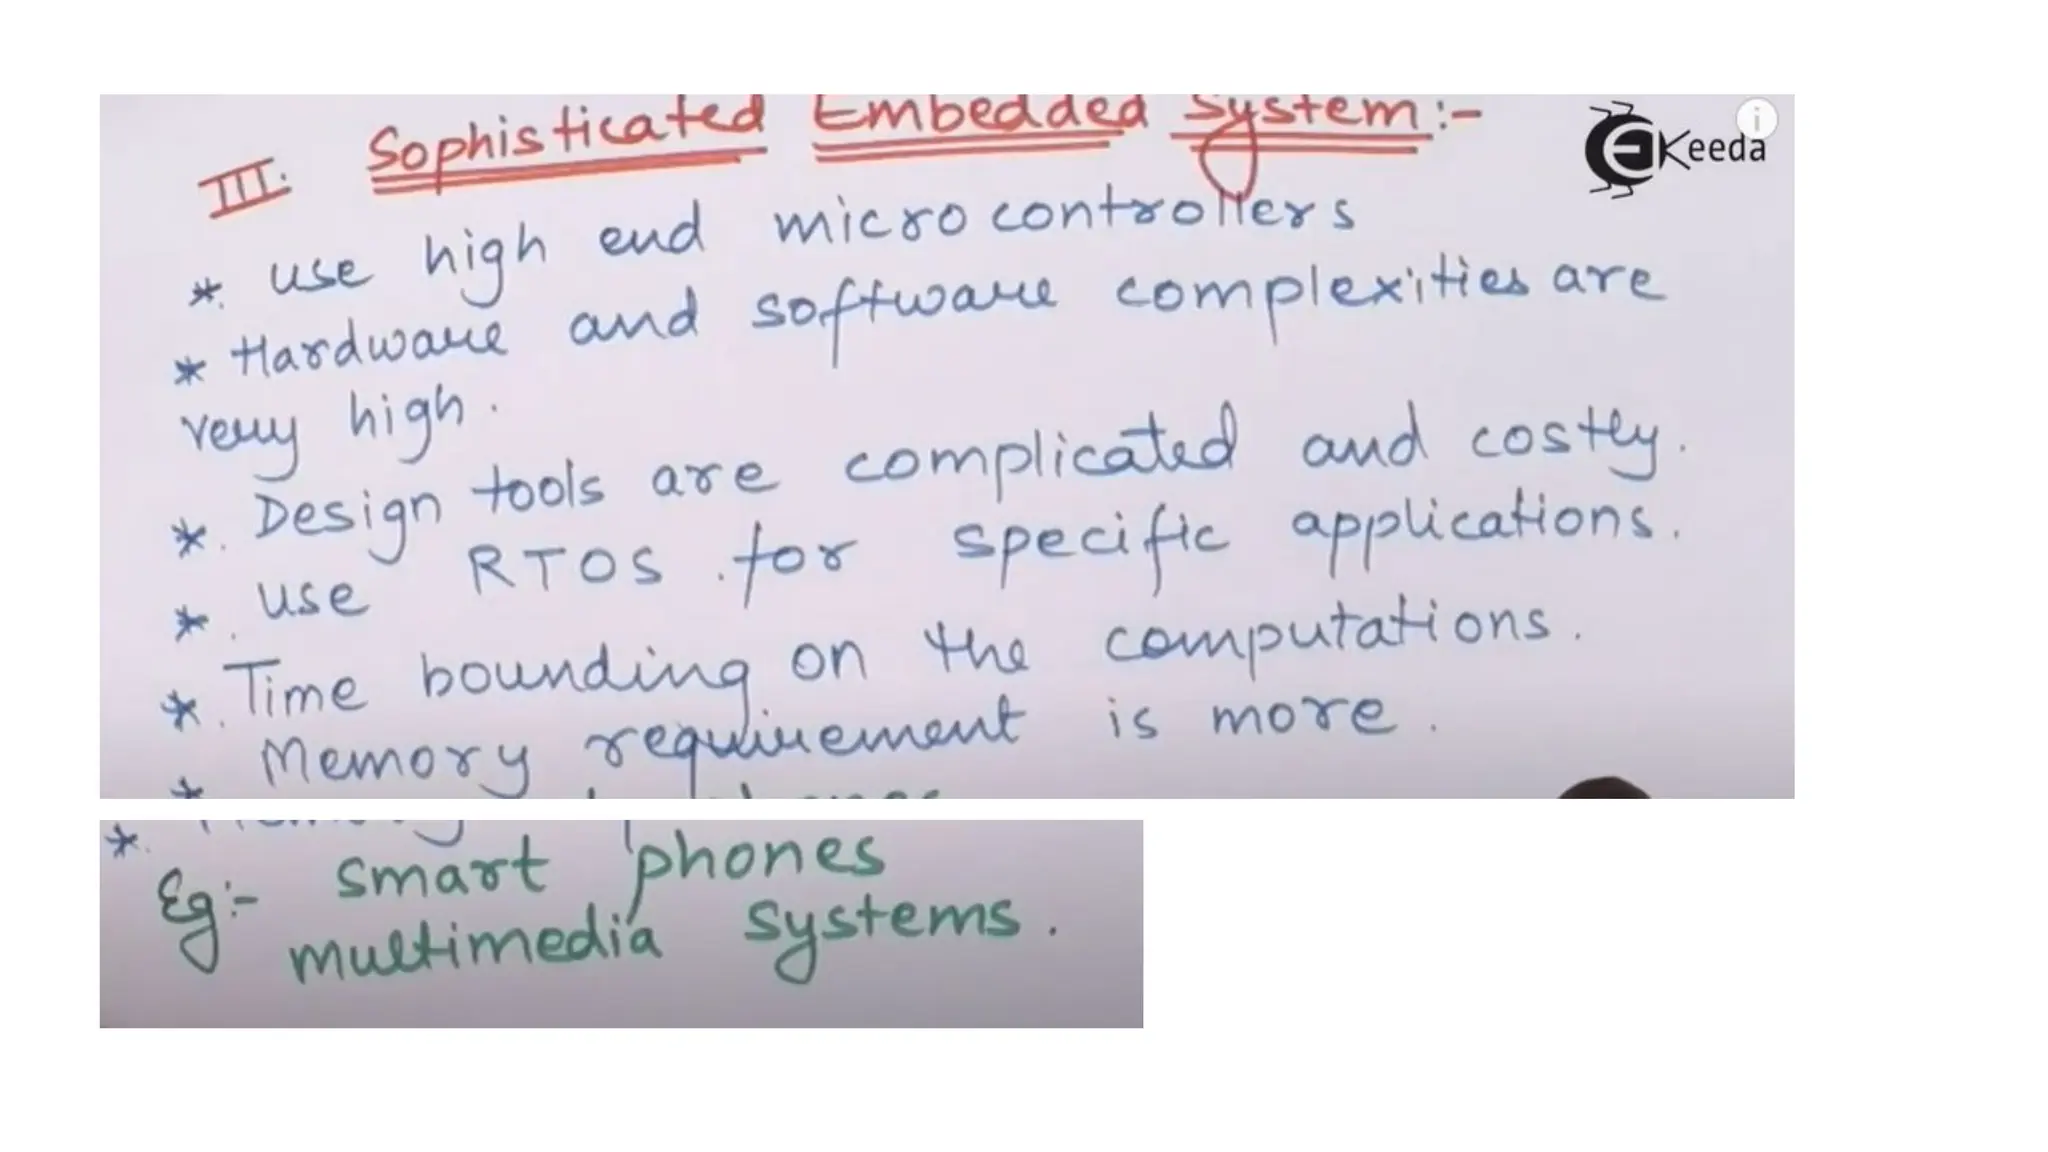 III. Sophisticated Embedded System:-
EKeeda
i
*. use high end micro controllers
* Hardware and software complexities are
very high.
*. Design tools are complicated and costly.
*. use RTOS for specific applications.
*. Time bounding on the computations.
* Memory requirement is more.
*.
Eg:- smart phones
multimedia systems.